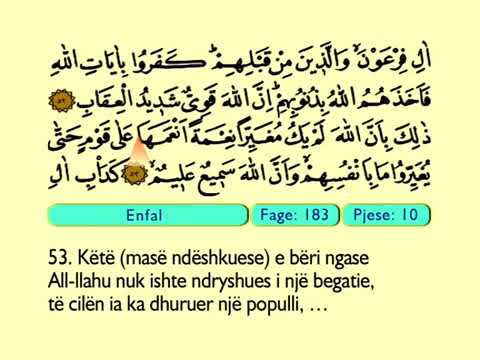 اٰلِ فِرْعَوْنَۙ وَالَّذ۪ينَ مِنْ قَبْلِهِمْۜ كَفَرُوا بِاٰيَاتِ اللّٰهِ
فَاَخَذَهُمُ اللّٰهُ بِذُنُوبِهِمْۜ اِنَّ اللّٰهَ قَوِيٌّ شَد۪يدُ الْعِقَابِ ٥٢
ذٰلِكَ بِاَنَّ اللّٰهَ لَمْ يَكُ مُغَيِّرًا نِعْمَةً اَنْعَمَهَا عَلٰى قَوْمٍ حَتّٰى
يُغَيِّرُوا مَا بِاَنْفُسِهِمْۙ وَاَنَّ اللّٰهَ سَم۪يعٌ عَل۪يمٌۙ ٥٣ كَدَاْبِ اٰلِ
Enfal Fage: 183 Pjese: 10
53. Këtë (masë ndëshkuese) e bëri ngase
All-llahu nuk ishte ndryshues i një begatie,
të cilën ia ka dhuruer një populli, …